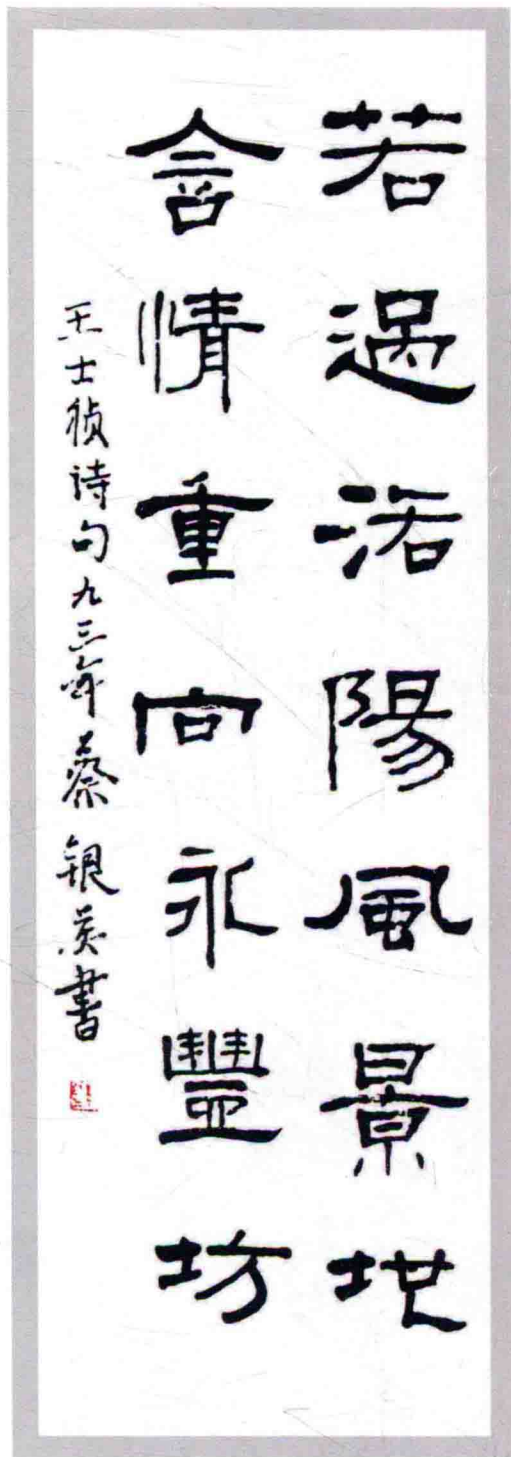 若過洛陽風景地
含情重向永豐坊
王士祯诗句九三年蔡银書